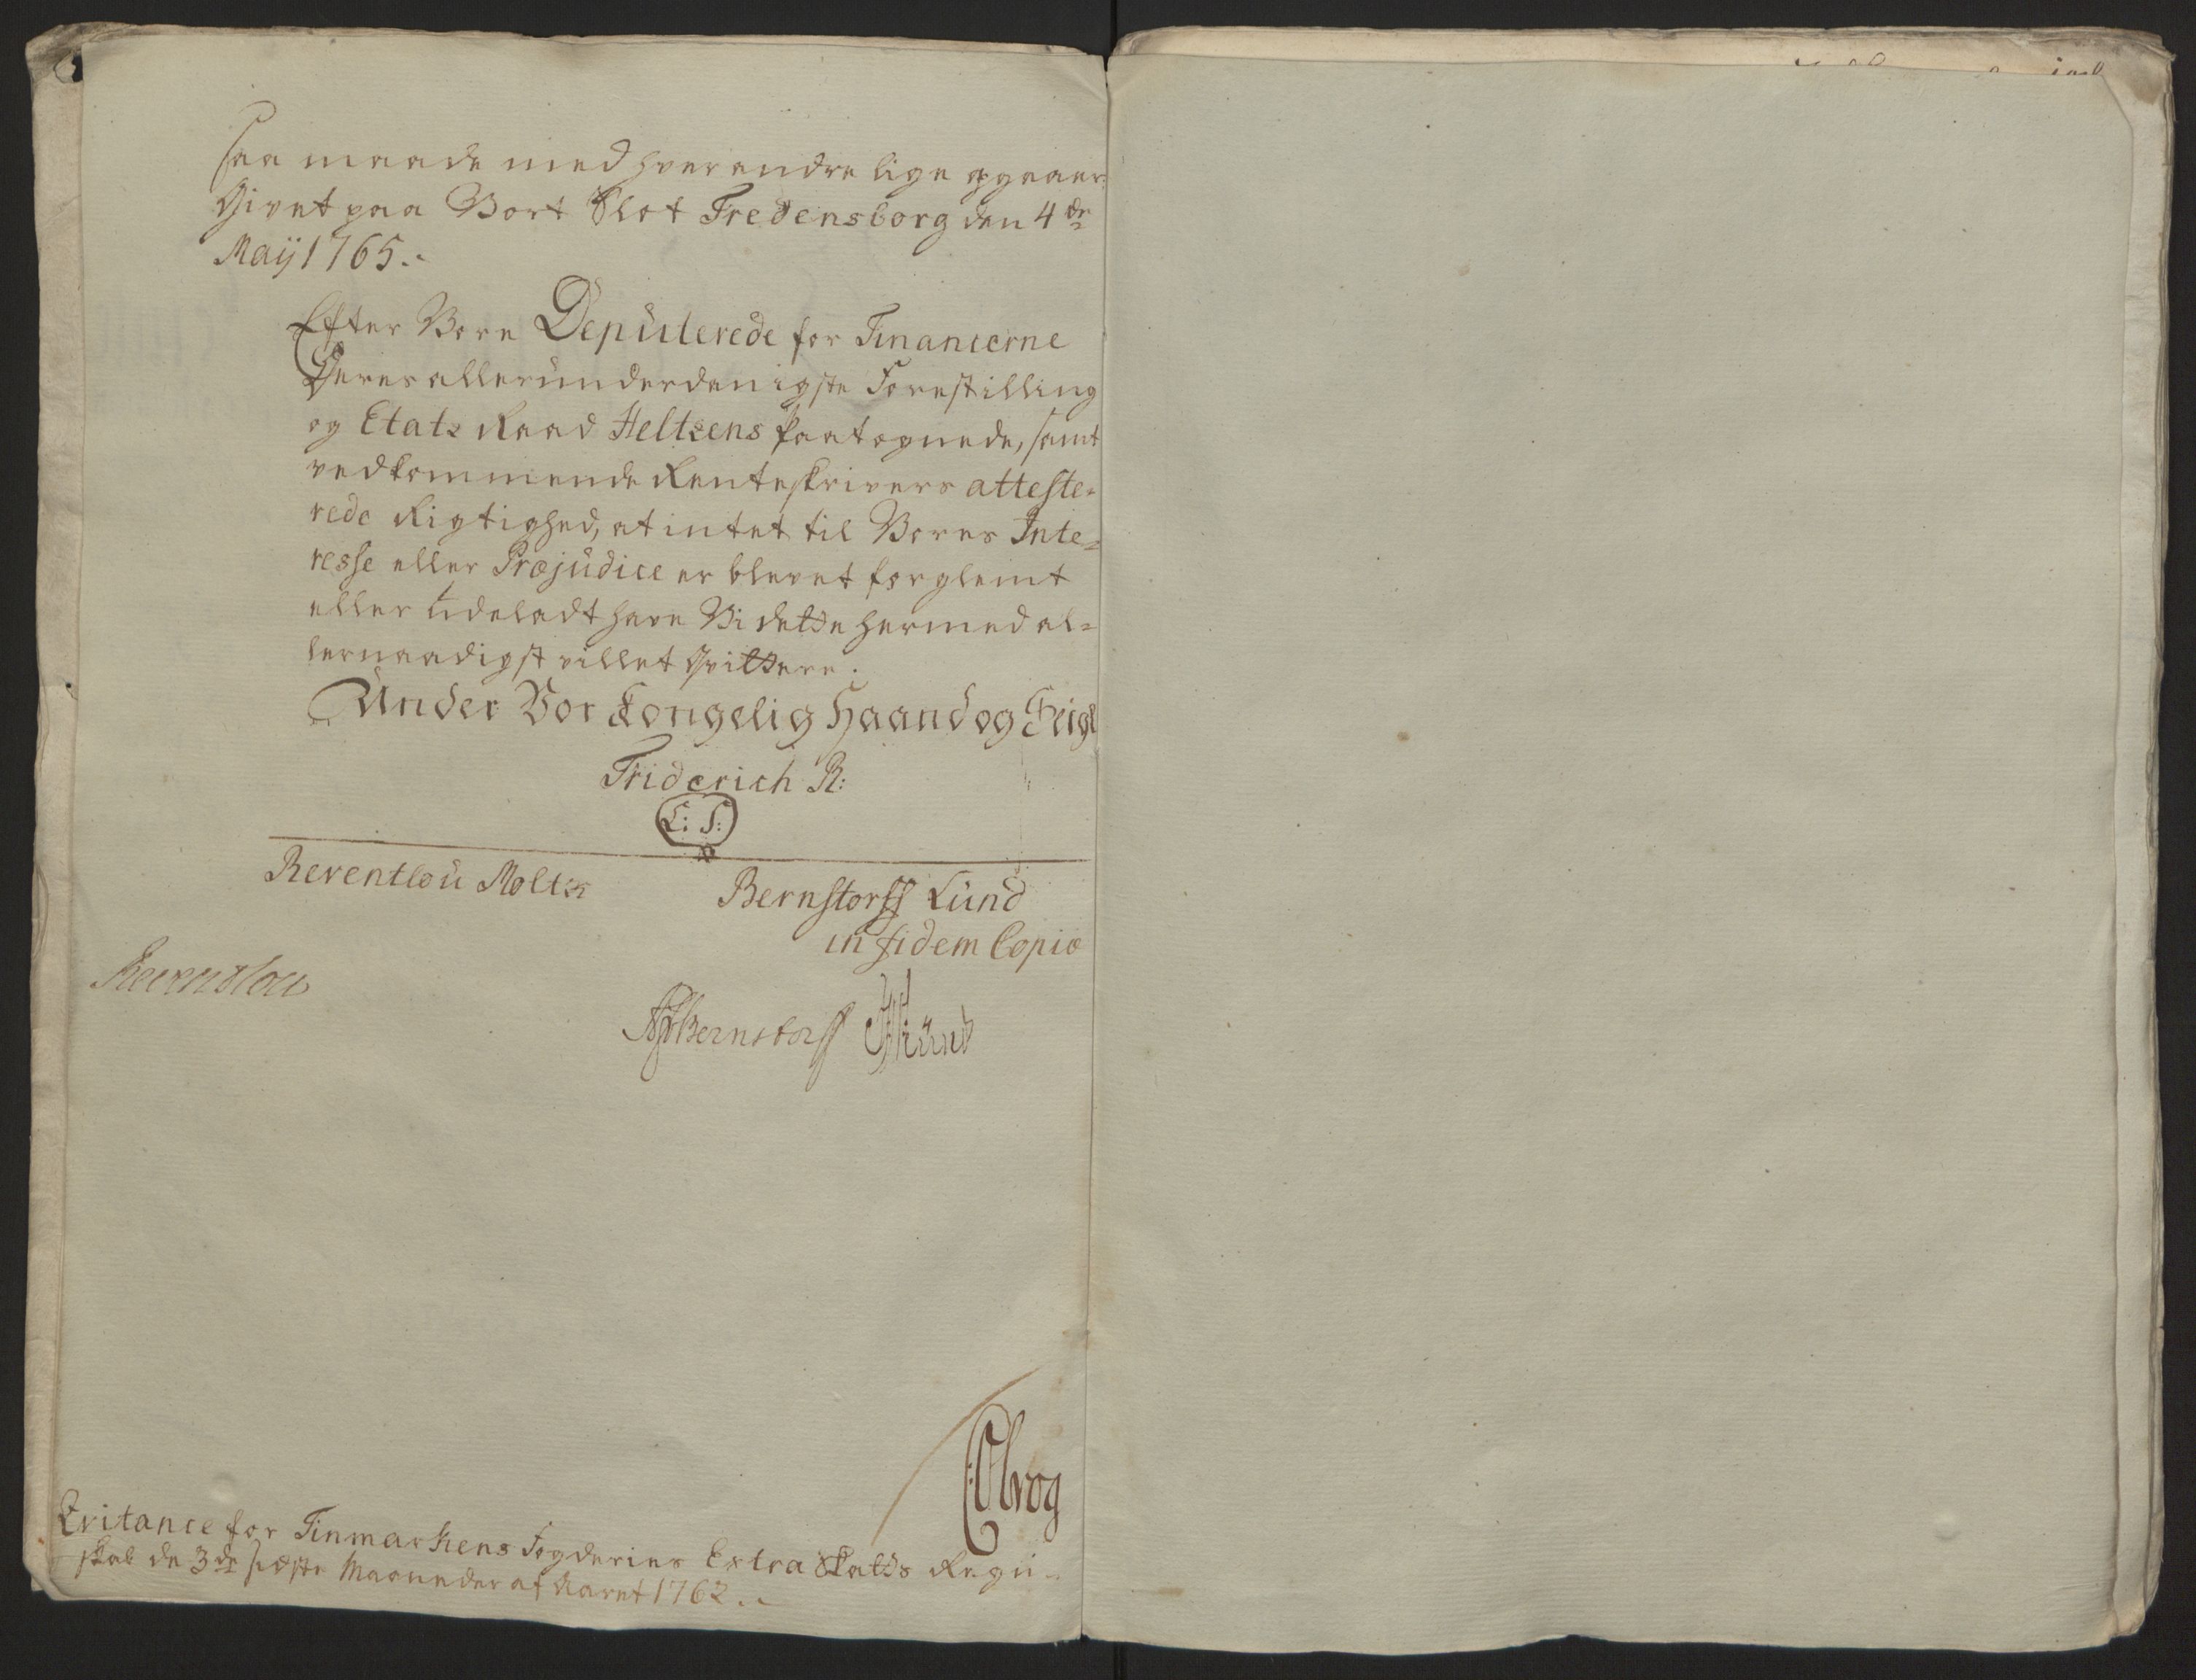 saa maade med hverandre lige opgaaer.
Givet paa Vort Slot Fredensborg den 4de
Maij 1765.
Efter Vore Depüterede for Financerne
Deres alleründerdanigste Forestilling
og Etatz Raad Heltzens Paategnede, samt
vedkommende Renteskrivers atteste-
rede Rigtighed, at intet til Vores Inte-
resse eller Præjüdice er blevet forglemt
eller üdeladt have Vi dette hermed al-
lernaadigst villet Qvittere.
Under Vor Kongelig Haand og Seigl
Friderich R:
L: S:
Reventloü Moltke
Bernstorff Lünd
in fidem Copiæ
Reventlou
Bernstorff Lünd
Qvitance for Finmarkens Fogderies Extra Skatts Regn-
skab de 3de sidste Maaneder af Aaret 1762.